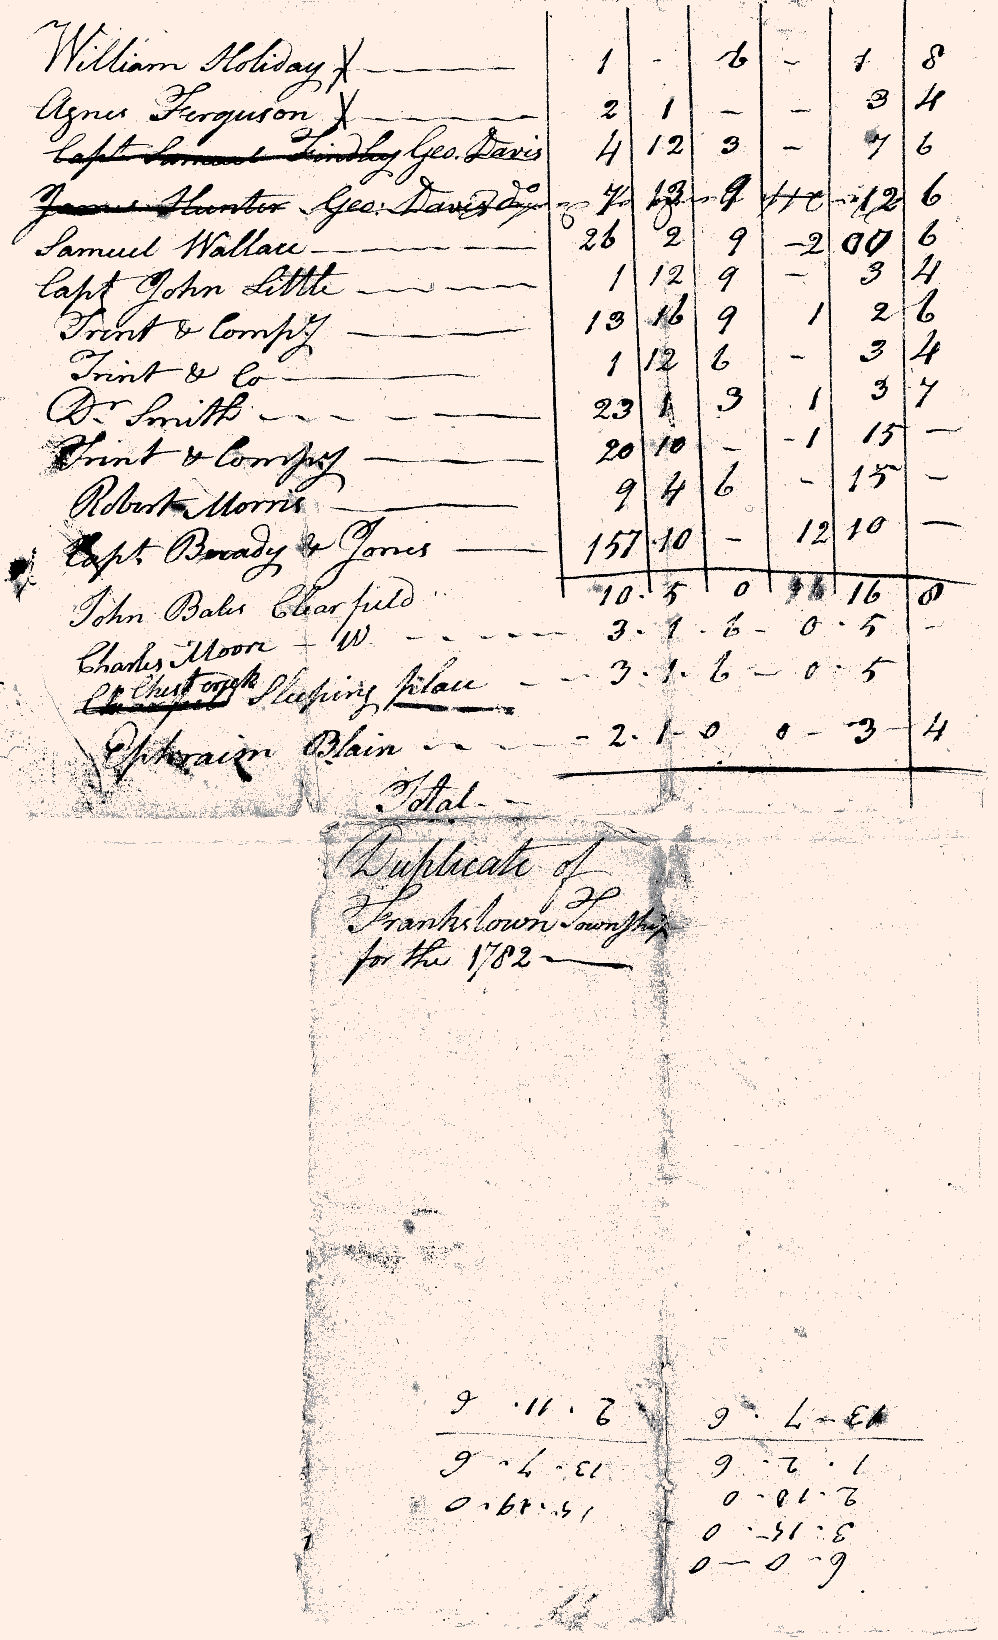 William Holiday X — 1 - 6 - 1 8
Agnes Ferguson X — 2 1 - - 3 4
Capt Samuel Findley Geo. Davis 4 12 3 - 7 6
James Hunter Geo: Davis Do 7 13 9 - 12 6
Samuel Wallace — 26 2 9 -2 00 6
Capt John Little — 1 12 9 - 3 4
Trint & Compy — 13 16 9 1 2 6
Trint & Co — 1 12 6 - 3 4
Dr Smith - - - - 23 1 3 1 3 7
Trint & Compy — 20 10 - -1 15 —
Robert Morris — 9 4 6 - 15 —
Capt Bready & Jones — 157 10 - 12 10 —
John Bales Clearfield 10 . 5 0 16 8
Charles Moore - W - - - - 3 . 1 . 6 - 0 . 5 -
Chest creek Sleeping place - - 3 . 1 . 6 — 0 . 5
Ephraim Blain - - - - 2 . 1 - 0 0 - 3 - 4
Total - -
Duplicate of
Frankstown Township
for the 1782 —
6 - 0 — 0
3 . 15 . 0
2 . 10 . 0
1 . 2 . 6
13 - 7 . 6
15 . 19 . 0
13 . 7 . 6
2 . 11 . 6